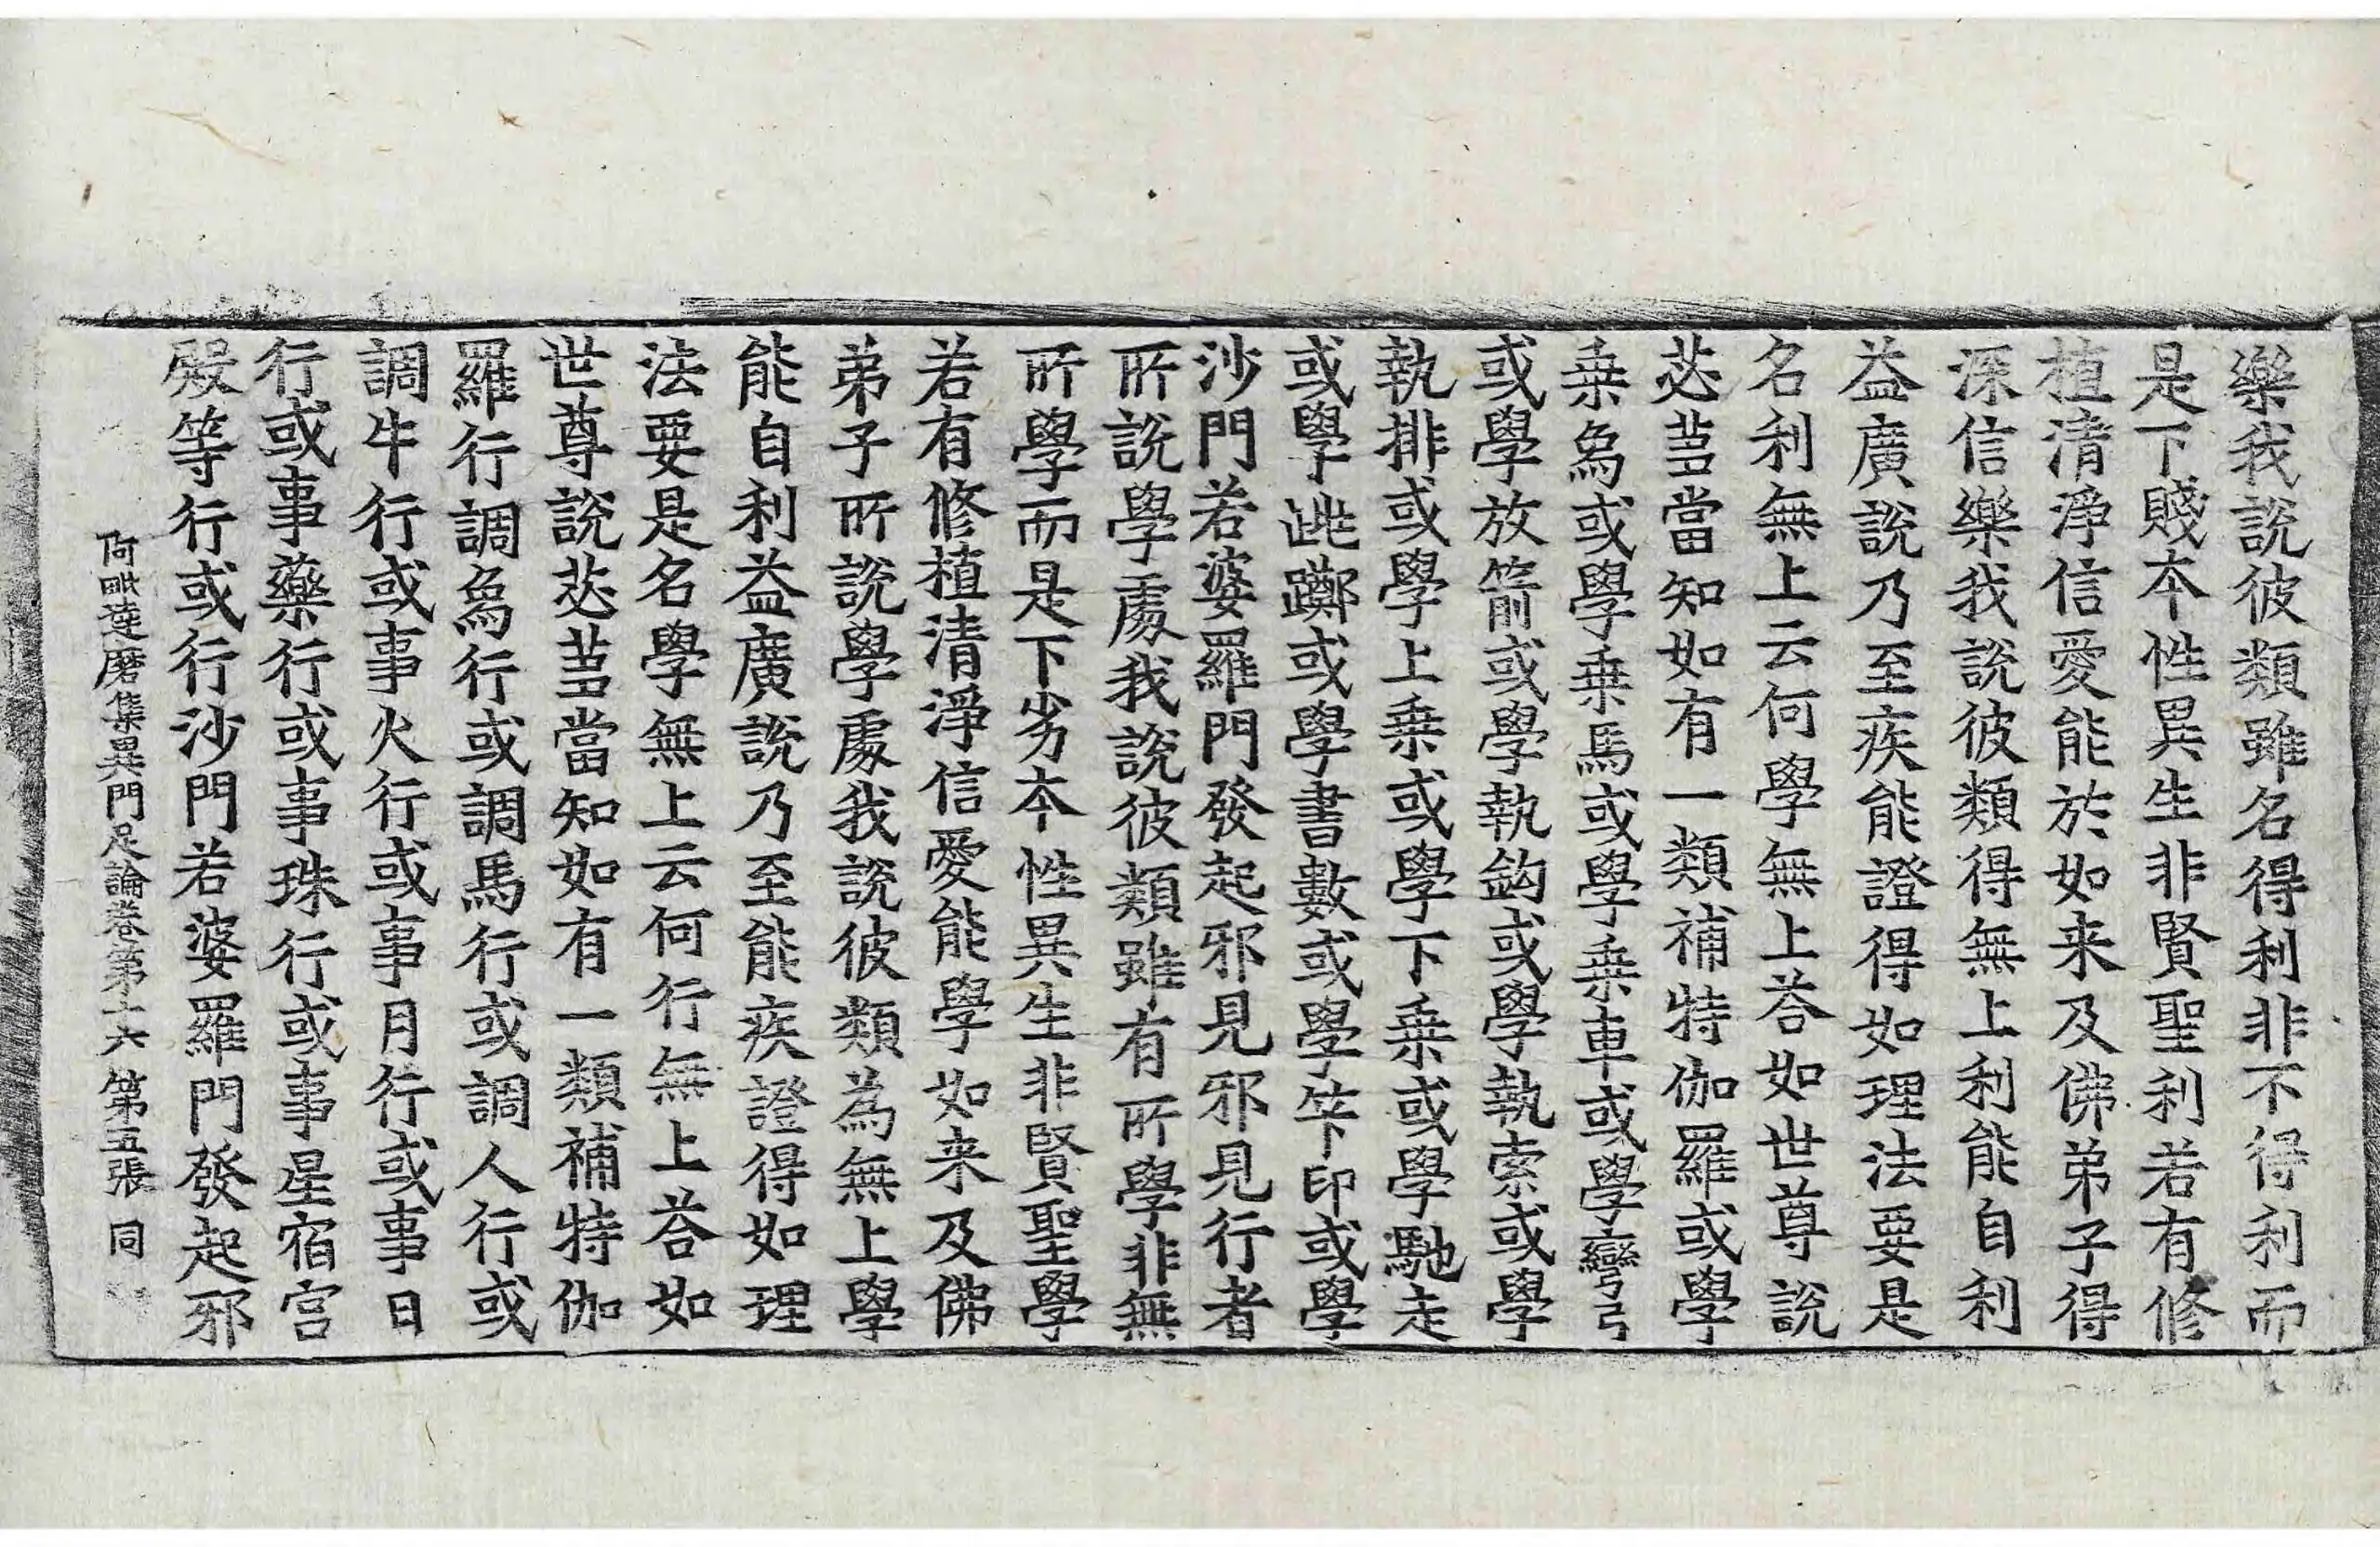 樂我說彼類雖名得利非不得利而
是下賤本性異生非賢聖利若有修
植清淨信愛能於如来及佛弟子得
深信樂我說彼類得無上利能自利
益廣說乃至疾能證得如理法要是
名利無上云何學無上荅如世尊說
苾蒭當知如有一類補特伽羅或學
乗烏或學乗馬或學乗車或學彎弓
或學放箭或學執鈎或學執索或學
執排或學上乗或學下乗或學馳走
或學跳躑或學書數或學筭印或學
沙門若婆羅門發起邪見邪見行者
所說學處我說彼類雖有所學非無
所學而是下劣本性異生非賢聖學
若有修植清淨信愛能學如来及佛
弟子所說學處我說彼類為無上學
能自利益廣說乃至能疾證得如理
法要是名學無上云何行無上荅如
世尊說苾蒭當知如有一類補特伽
羅行調烏行或調馬行或調人行或
調牛行或事火行或事月行或事日
行或事藥行或事珠行或事星宿宫
殿等行或行沙門若婆羅門發起邪
阿毗達磨集異門足論卷第十六 第五張 同